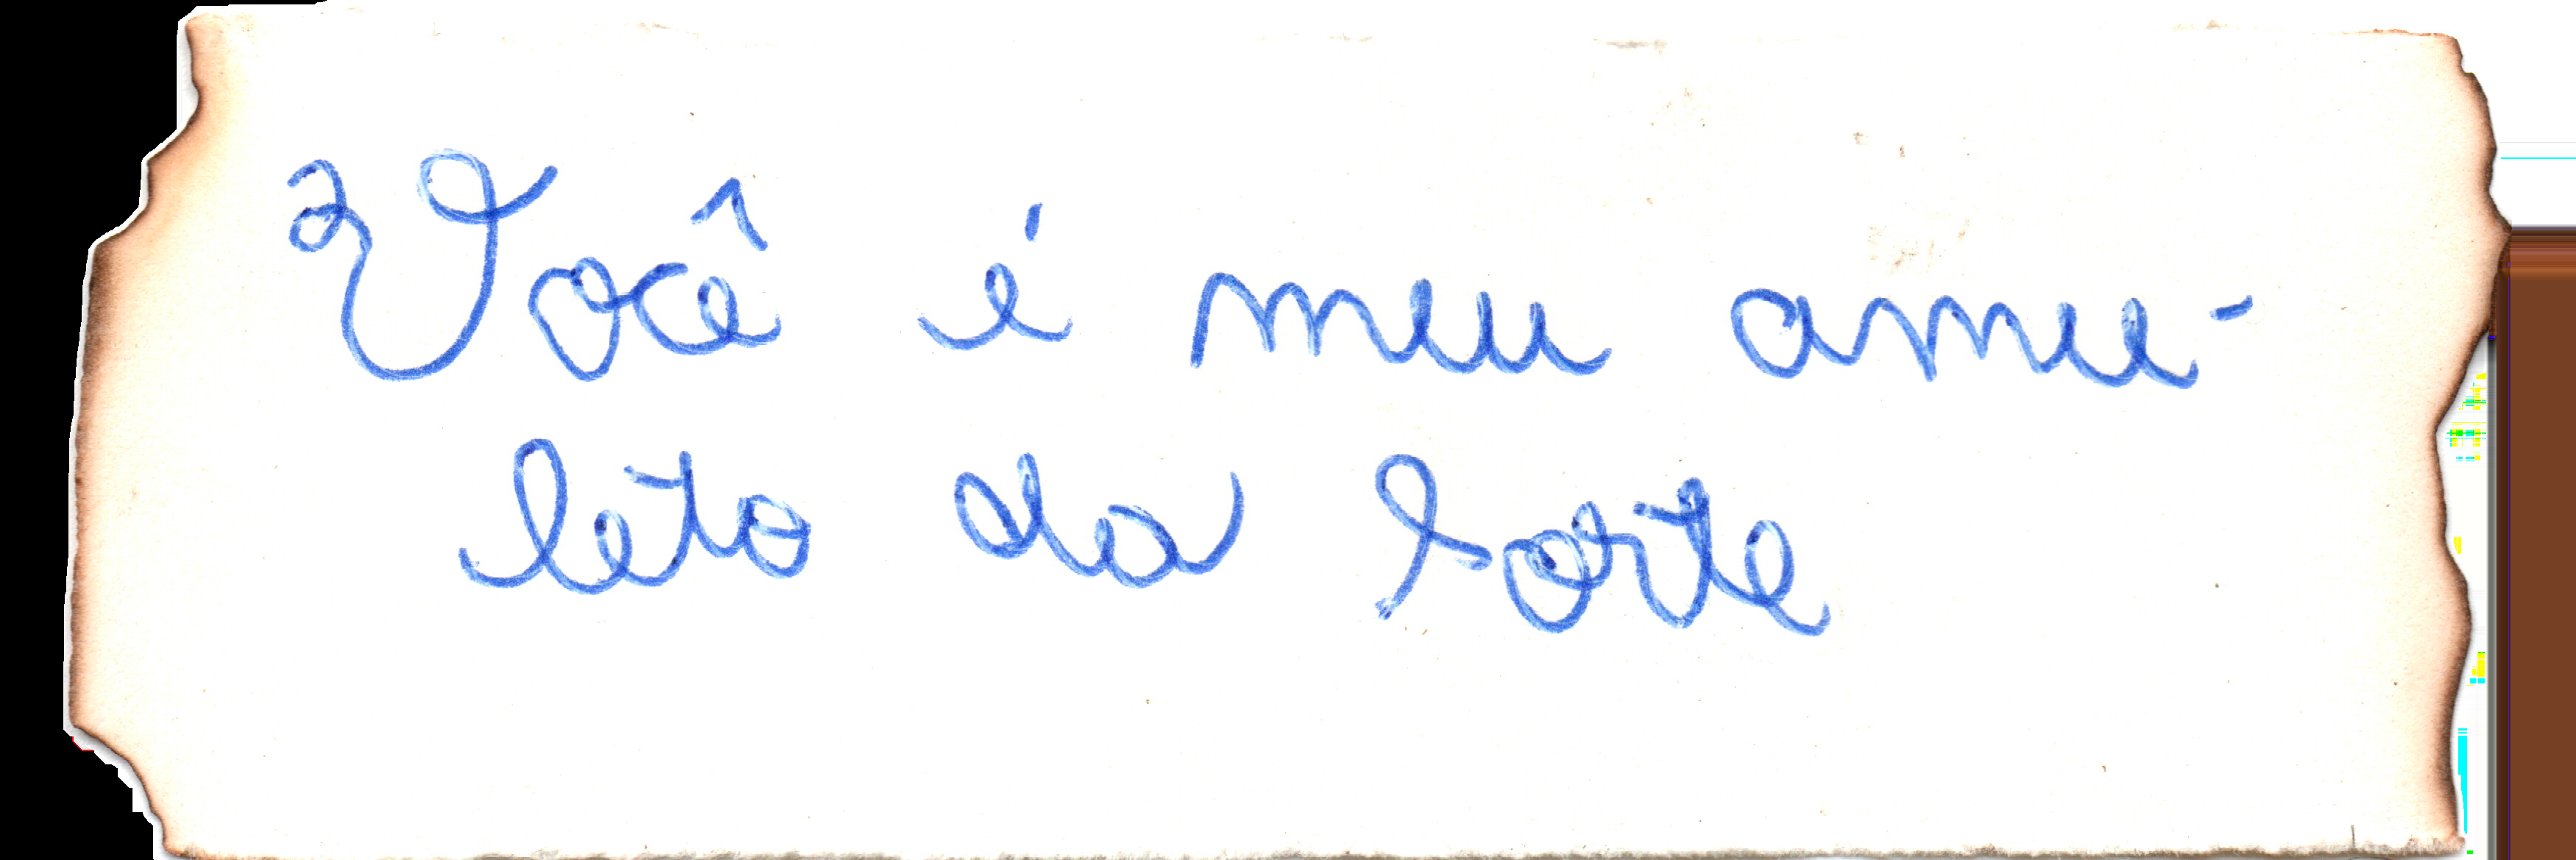 Você é meu amu-
leto da sorte